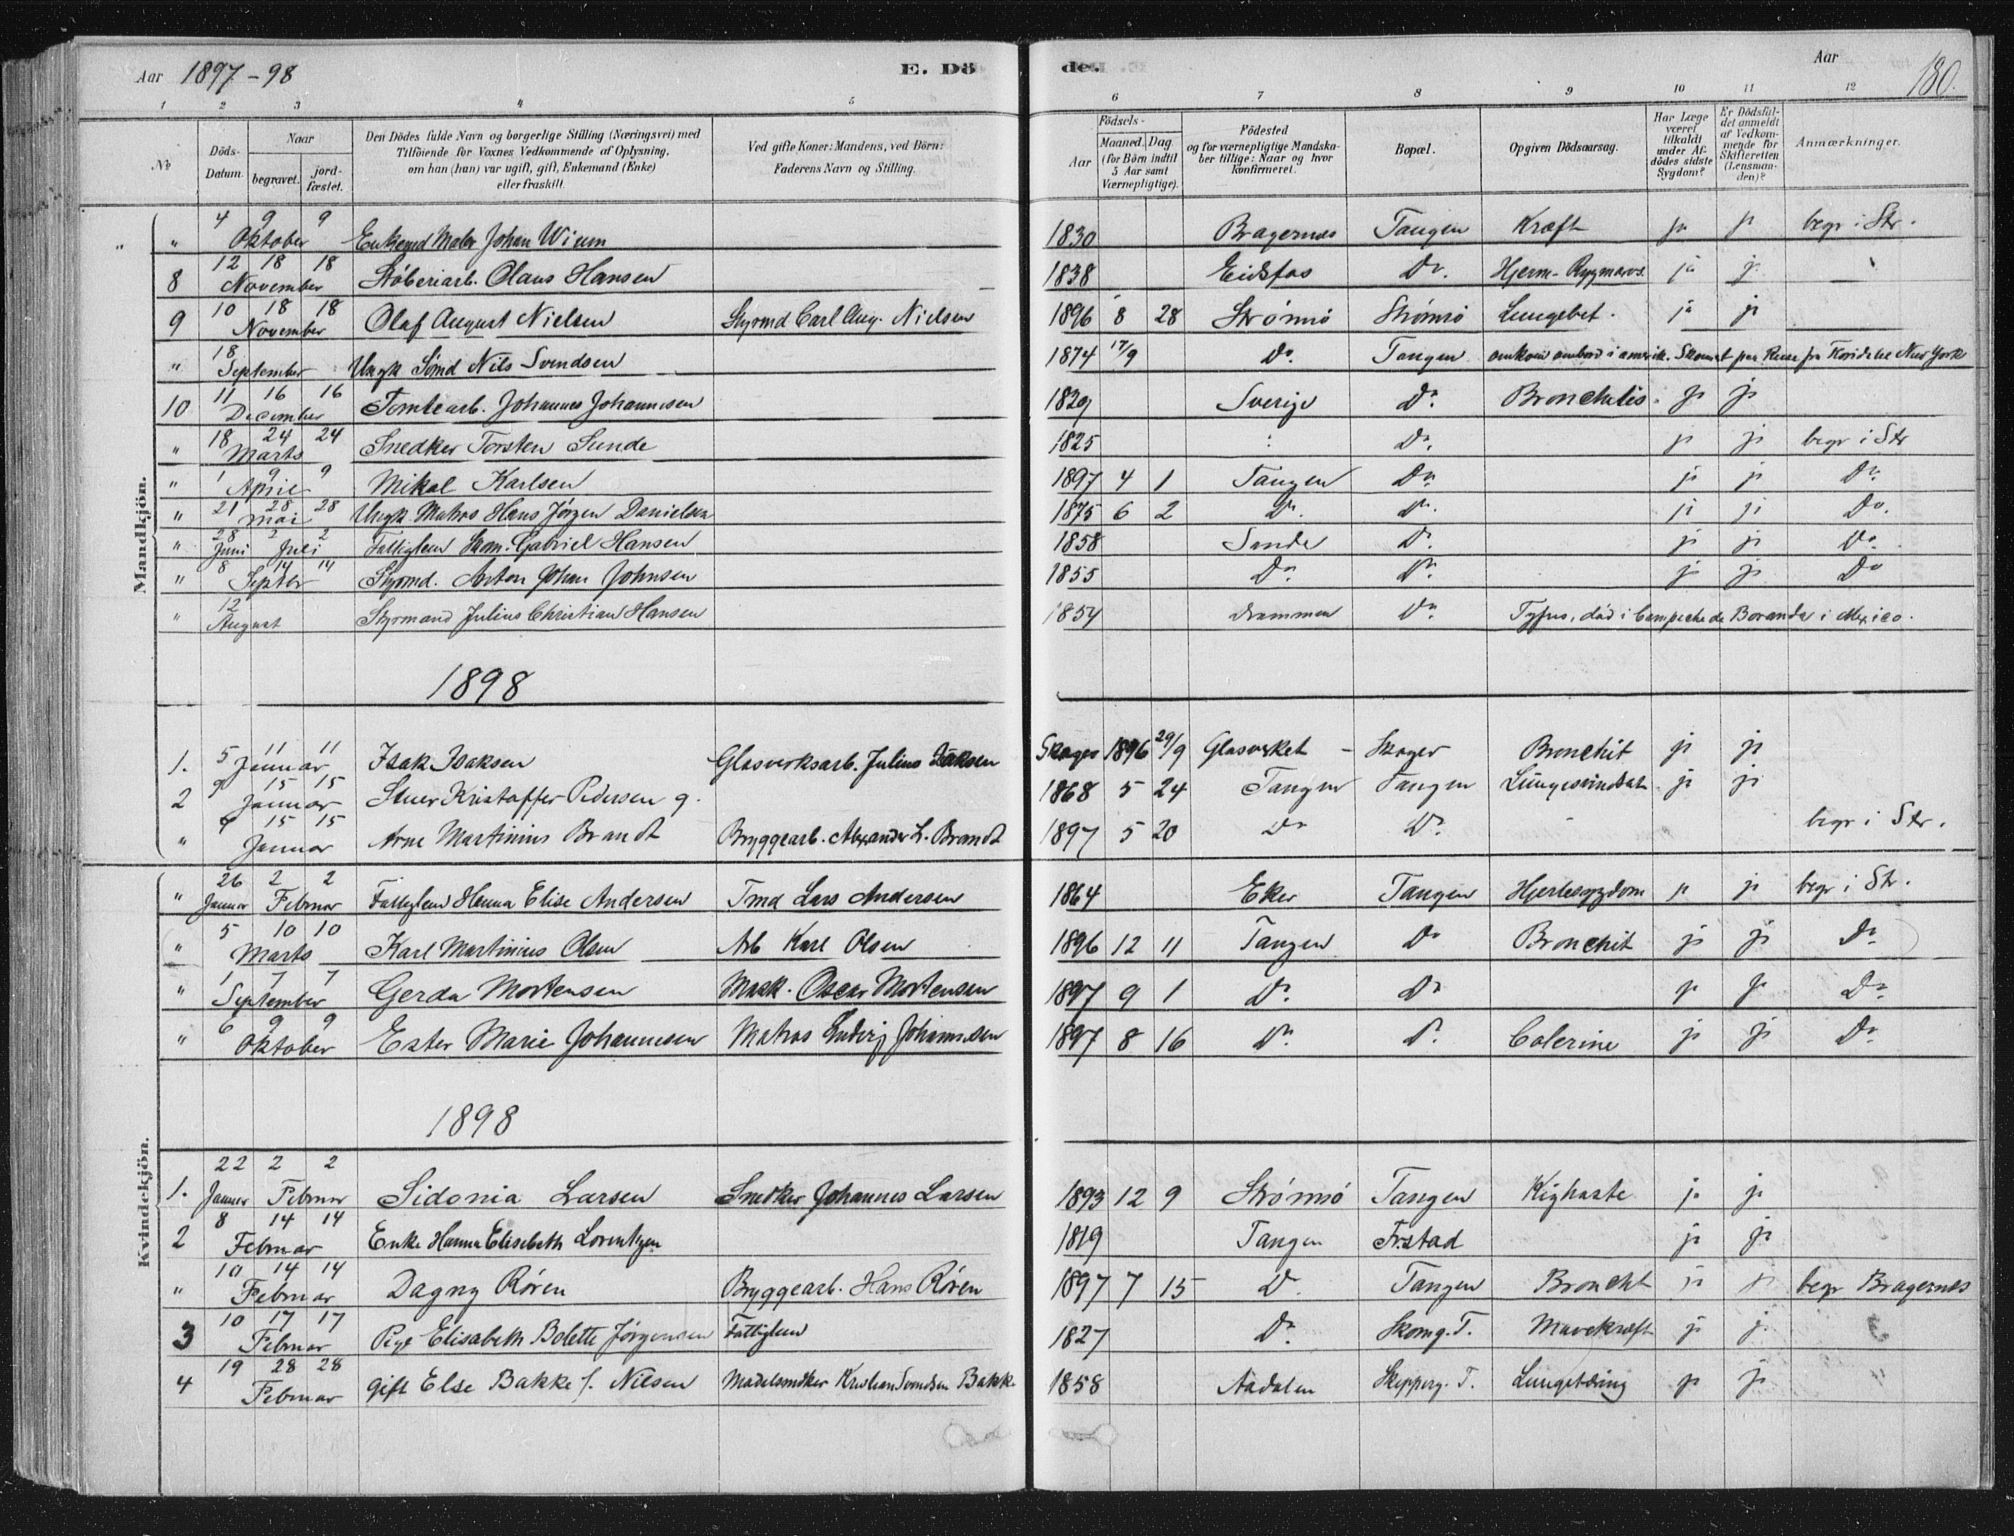 Aar 1897-98 E. Dö de. Aar 180.
1 2 3 4 5 6 7 8 9 10 11 12
№ Döds-Datum. Naar begravet. jord-fæstet. Den Dödes fulde Navn og borgerlige Stilling (Næringsvei) med Tilföiende for Voxnes Vedkommende af Oplysning, om han (hun) var ugift, gift, Enkemand (Enke) eller fraskilt. Ved gifte Koner: Mandens, ved Börn: Faderens Navn og Stilling. Födsels- Aar Maaned. Dag. (for Börn indtil 5 Aar samt Værnepligtige). Födested og for værnepligtige Mandska-ber tillige: Naar og hvor konfirmeret. Bopæl. Opgiven Dödsaarsag. Har Læge været tilkaldt under Af-dödes sidste Sygdom? Er Dödsfal-det anmeldt af Vedkom-mende for Skifteretten (Lensman-den)? Anmærkninger.
Mandkjön.
" 4 9 9 Oktober Enkemd Maler Johan Wium 1830 Bragernæs Tangen Kræft ja ja begr i Str.
8 12 18 18 November Støberiarb. Olaus Hansen 1838 Eidsfos Do. Hjerne-Rygmarvs. ja ja
9 10 18 18 November Olaf August Nielsen Styrmd Carl Aug. Nielsen 1896 8 28 Strømsö Strømsö Lungebet. ja ja
" 18 September Ungk Sömd Nils Svendsen 1874 17/9 Do. Tangen omkom ombord i amerik. Skonnert paa Reise fra New York
10 11 16 16 December Tomtearb. Johannes Johannesen 1829 Sverige Do. Bronchitis. ja ja
" 18 24 24 Marts Snedker Torsten Sunde 1825 Do. ja ja begr i Str
" 1 9 9 April Mikal Karlsen 1897 4 1 Tangen Do ja ja Do
" 21 28 28 Mai Ungk Matros Hans Jørgen Danielsen 1875 6 2 Do. Do. ja ja Do.
" 28 2 2 Juni Juli Fattiglem Skom. Gabriel Hansen 1858 Sande Do ja ja Do.
" 8 14 14 Septbr Styrmd. Anton Johan Johnsen 1855 Do Do. ja ja Do
" 12 August Styrmand Julius Christian Hansen 1854 Drammen Do Tyfus, död i Campeche de i Mexico.
1898
1. 5 11 11 Januar Isak Isaksen Glasverksarb. Julius Isaksen Skoger 1896 29/9 Glasverket - Skoger Bronchit ja ja
2 9 15 15 Januar Stuer Kristoffer Pedersen g. 1868 5 24 Tangen Tangen Lungesvindsot ja ja
" 9 15 15 Januar Arne Martinius Brandt Bryggearb. Alexander L. Brandt 1897 5 20 Do Do. begr i Str.
Kvindekjön.
" 26 2 2 Januar Februar Fattiglem Hanna Elise Andersen Tmd Lars Andersen 1864 Eker Tangen Hjertesygdom ja ja begr i Str.
" 5 10 10 Marts Karl Martinius Olsen Arb Karl Olsen 1896 12 11 Tangen Do Bronchit ja ja Do
" 1 7 7 September Gerda Mortensen Mask. Oscar Mortensen 1897 9 1 Do. Do ja ja Do.
" 6 9 9 Oktober Ester Marie Johannesen Matros Ludvig Johannesen 1897 8 16 Do. Do. Colerine ja ja Do
1898
1. 22 2 2 Januar Februar Sidonia Larsen Snedker Johannes Larsen 1893 12 9 Strømsö Tangen Kighoste ja ja
2 8 14 14 Februar Enke Hanna Elisebeth Lorentzen 1819 Tangen Frstad ja ja
" 10 14 14 Februar Dagny Røren Bryggearb. Hans Røren 1897 7 15 Do Tangen Bronchit ja ja begr Bragernæs
3 10 17 17 Februar Pige Elisabeth Bolette Jørgensen Fattiglem 1827 Do. Skomg. T. Mavekræft ja ja
4 19 28 28 Februar Gift Else Bakke f. Nilsen Kristian Svendsen Bakke 1858 Aadalen Skipperg. T. Lungetæring ja ja